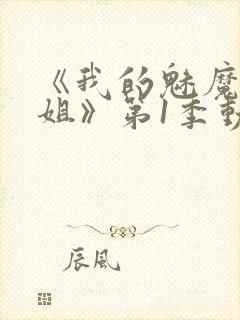 《我的魅魔
姐》第1季動
辰风